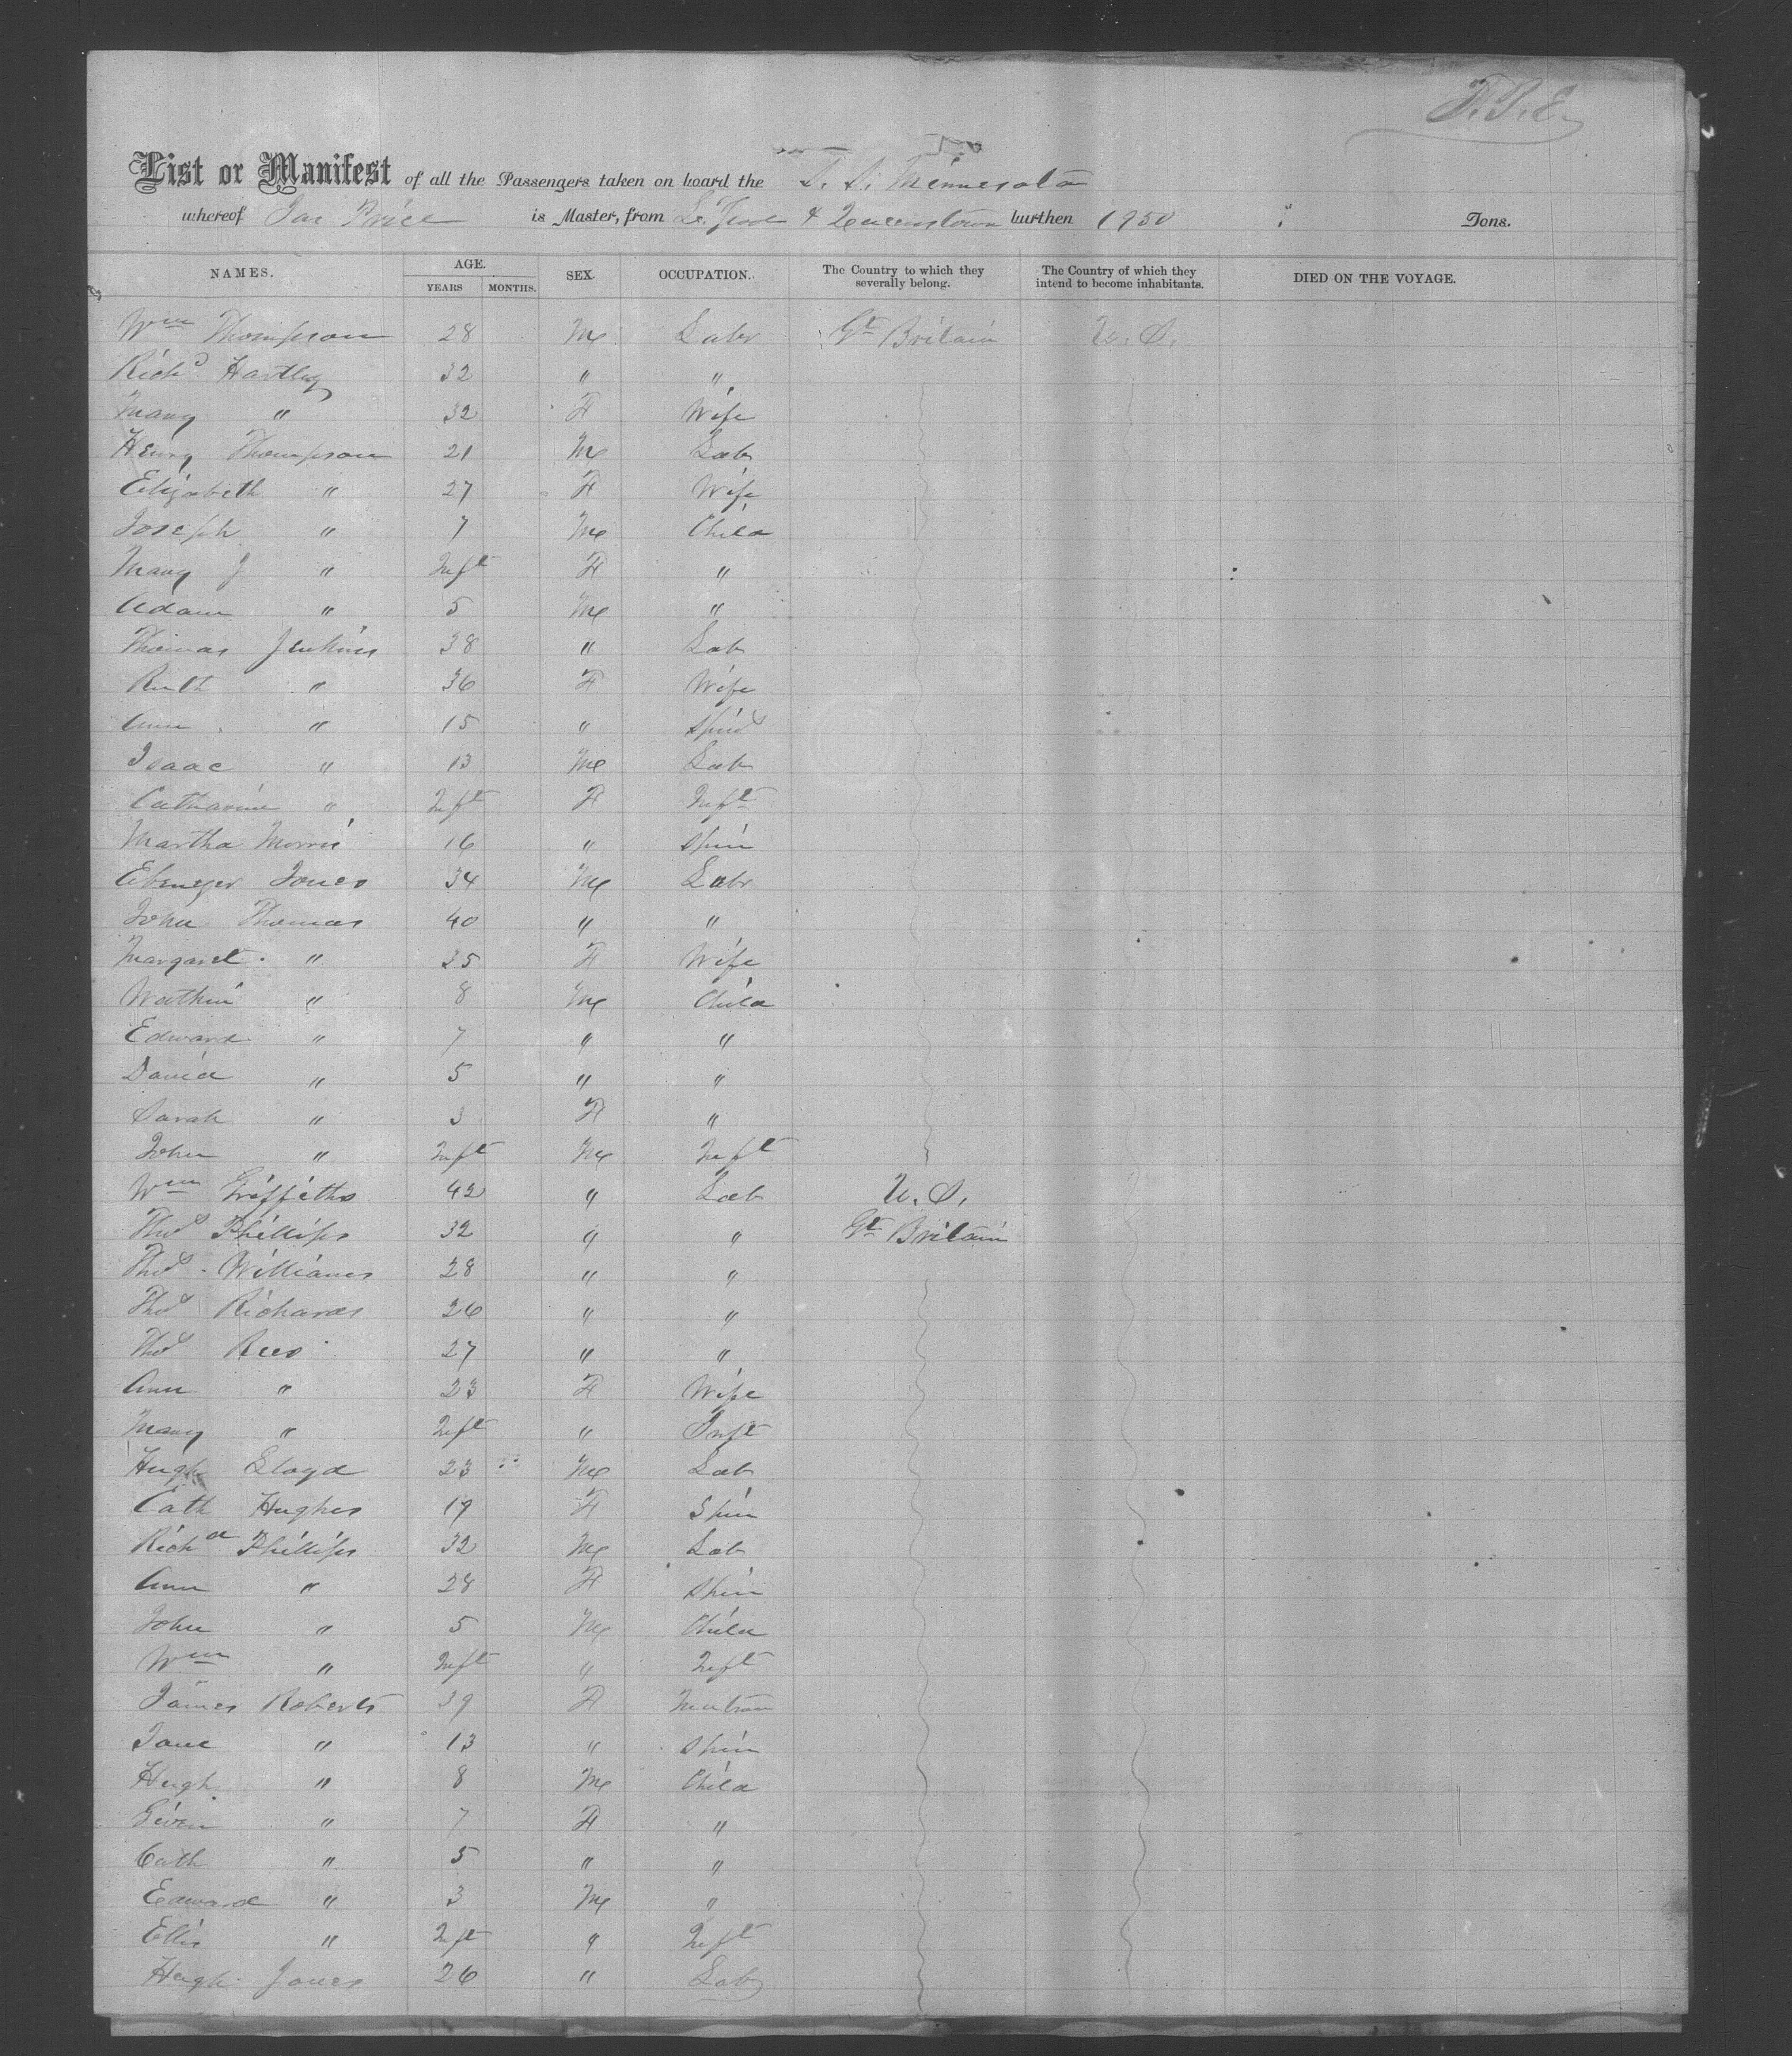 T.B.E.
List or Manifest of all the Passengers taken on board the S. S. Minnesota
whereof Jas Price is Master, from L'pool & Queenstown burthen 1950 Tons.
NAMES. AGE. SEX. OCCUPATION. The Country to which they severally belong. The Country of which they intend to become inhabitants. DIED ON THE VOYAGE.
YEARS MONTHS.
Wm Thompson 28 M Labr Gt Britain U. S.
Richd Hartley 32 " "
Mary " 32 F Wife
Henry Thompson 21 M Lab
Elizabeth " 27 F Wife
Joseph " 7 M Child
Mary J " Inft F "
Adam " 5 M "
Thomas Jenkins 38 " Lab
Ruth " 36 F Wife
Ann " 15 " Spinr
Isaac " 13 M Lab
Catharine " Inft F Inft
Martha Morris 16 " Spin
Ebenezer Jones 34 M Labr
John Thomas 40 " "
Margaret " 35 F Wife
Watkin " 8 M Child
Edward " 7 " "
David " 5 " "
Sarah " 3 F "
John " Inft M Inft
Wm Griffiths 42 " Lab U. S.
Thos Phillips 32 " " Gt Britain
Thos Williams 28 " "
Thos Richards 26 " "
Thos Rees 27 " "
Ann " 23 F Wife
Mary " Inft " Inft
Hugh Lloyd 23 M Lab
Cath Hughes 19 F Spin
Richd Phillips 32 M Lab
Ann " 28 F Spin
John " 5 M Child
Wm " Inft " Inft
James Roberts 39 F Matron
Jane " 13 " Spin
Hugh " 8 M Child
Gwen " 7 F "
Cath " 5 " "
Edward " 3 M "
Ellis " Inft " Inft
Hugh Jones 26 " Lab